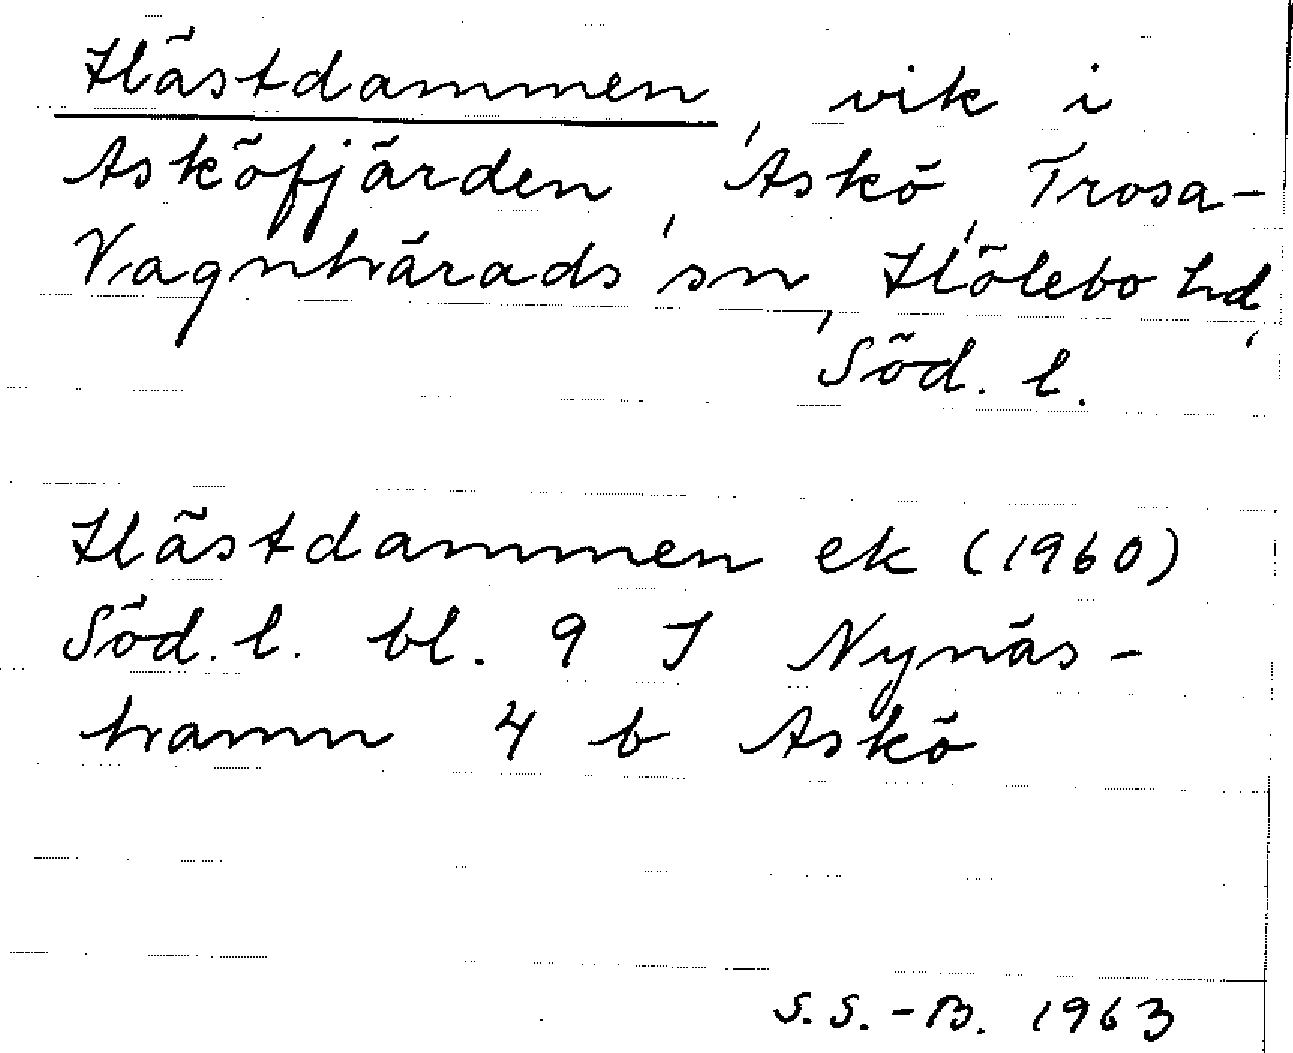 Hästdammen, vik i
Asköfjärden, Askö, Trosa-
Vagnhärads sn, Hölebo hd,
Söd. l.
Hästdammen ek (1960)
Söd. l. bl. 9 I Nynäs-
hamn 4 b Askö
S. S.-B. 1963